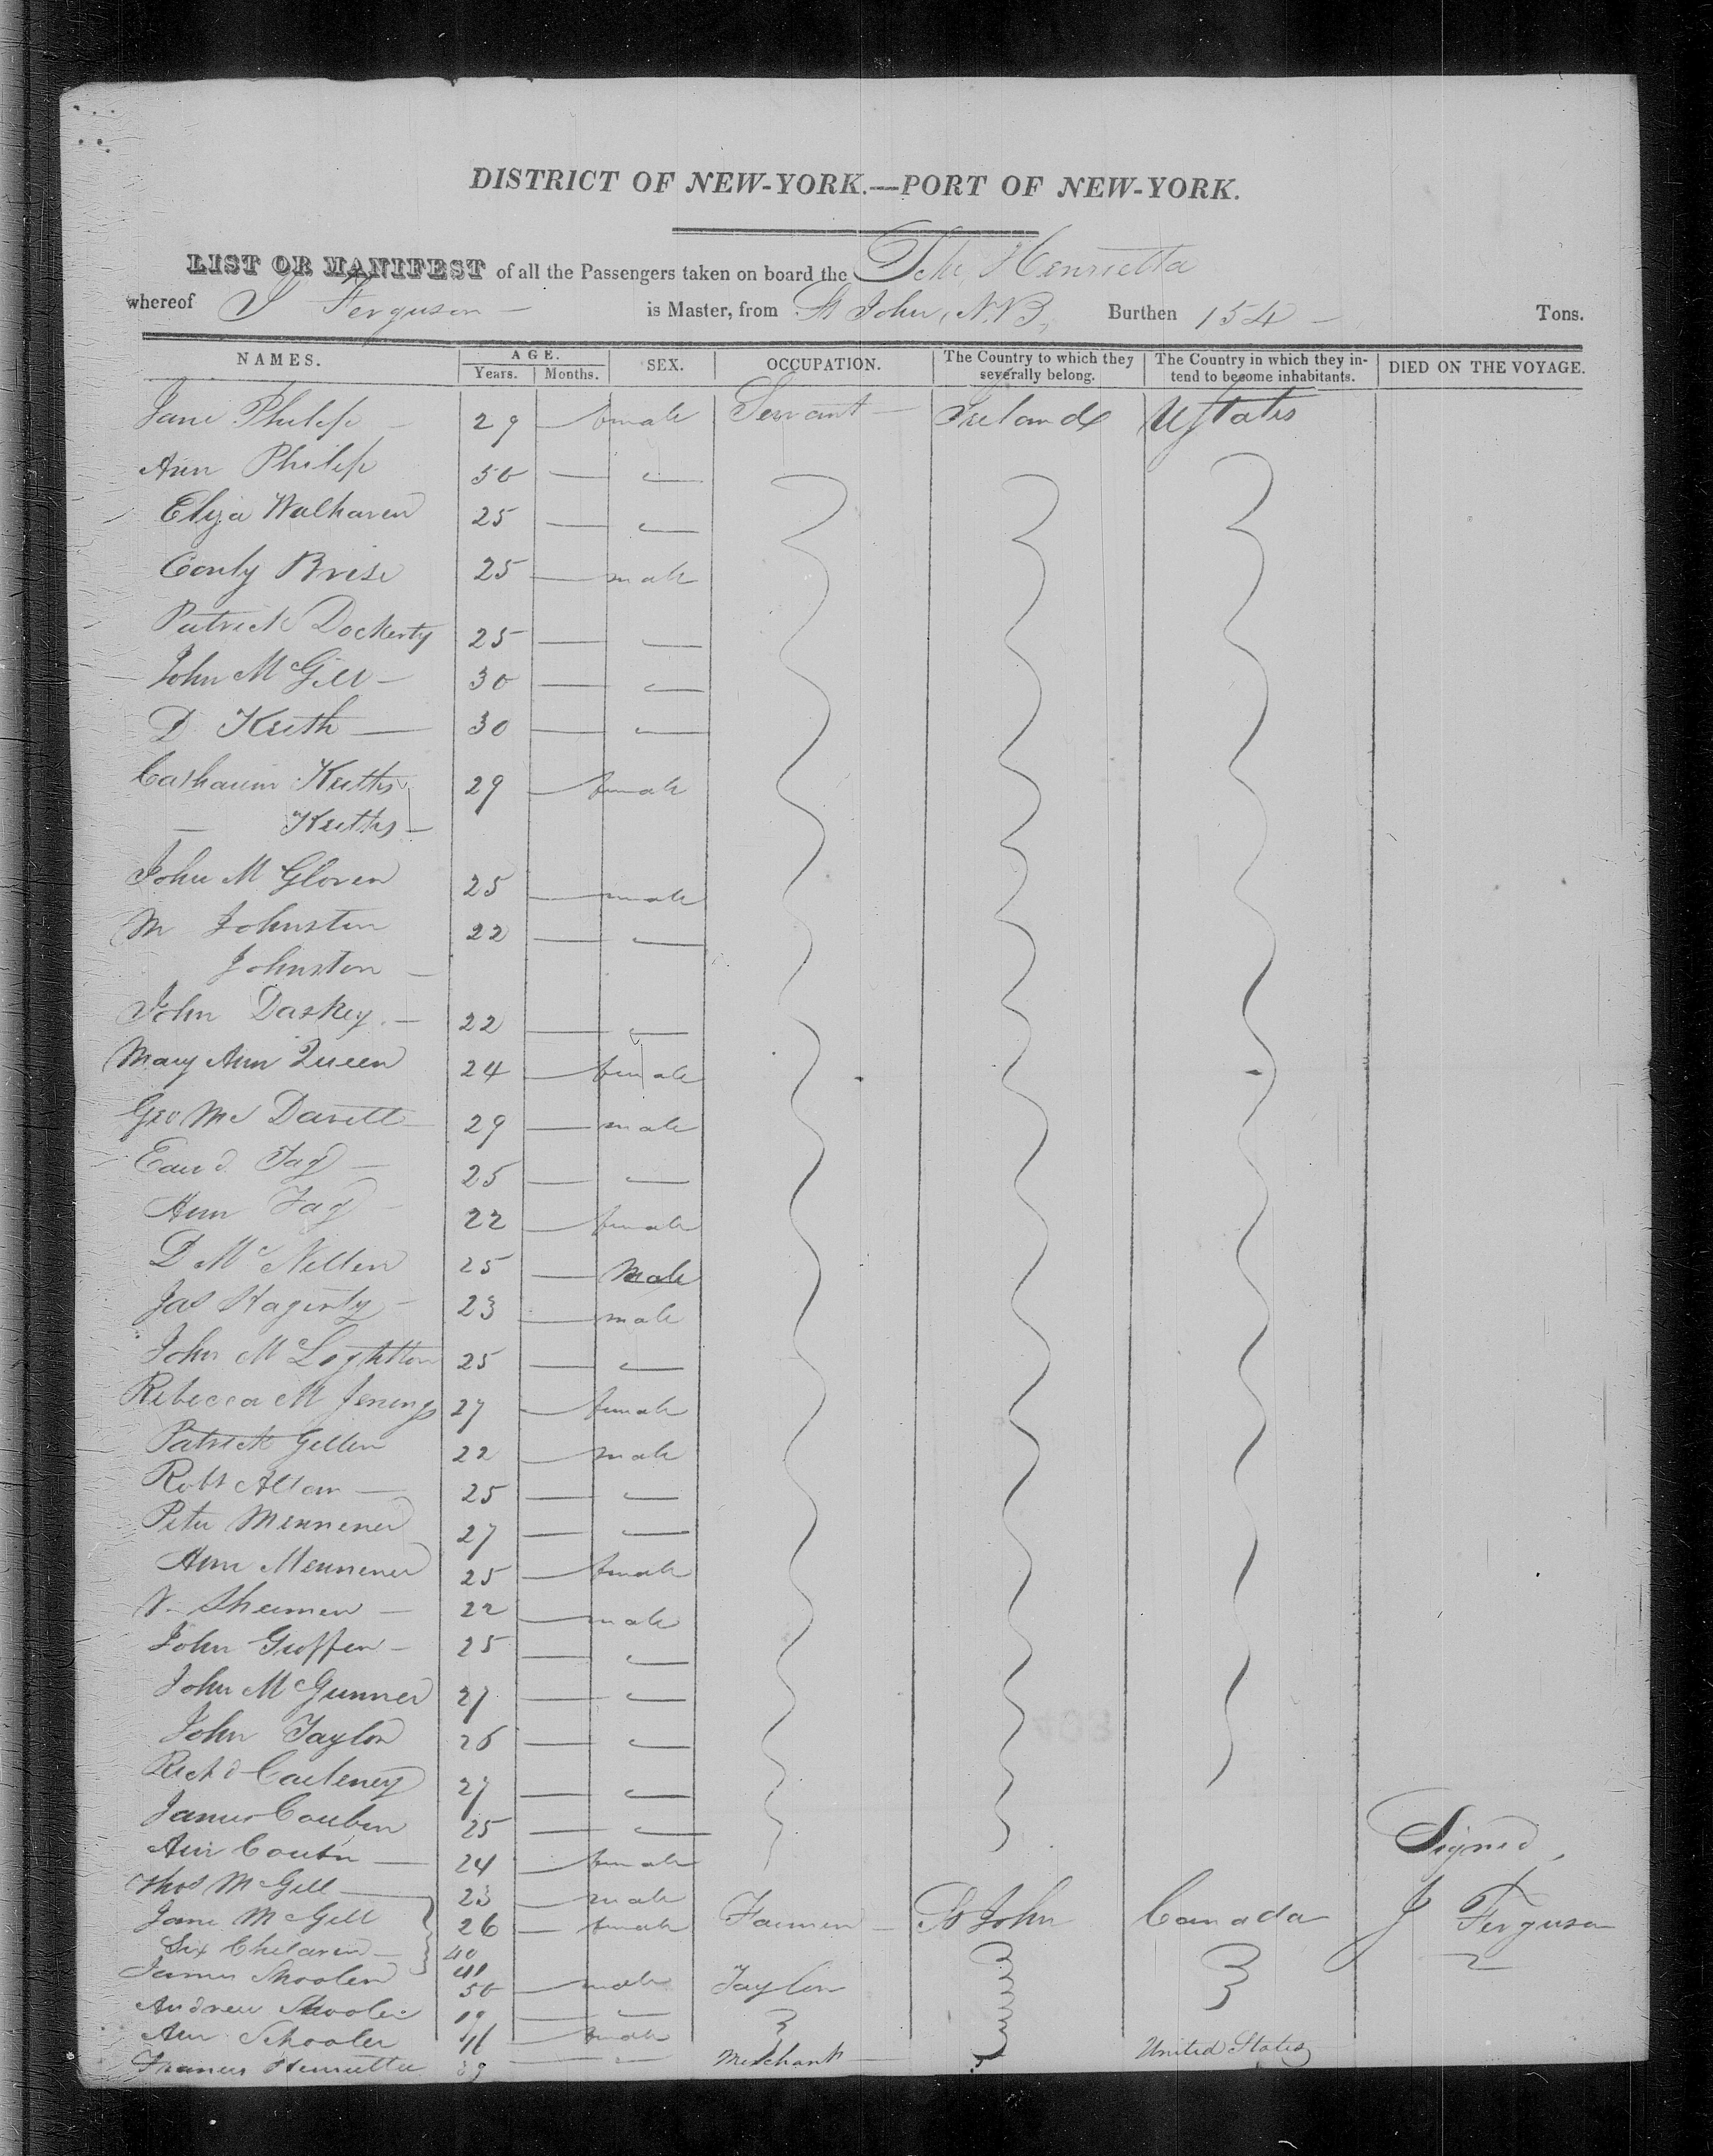 DISTRICT OF NEW-YORK.—PORT OF NEW-YORK.
LIST OR MANIFEST of all the Passengers taken on board the Schr Henrietta
whereof J Ferguson — is Master, from St John, N.B, Burthen 154 — Tons.
NAMES. AGE. Years. Months. SEX. OCCUPATION. The Country to which they severally belong. The Country in which they intend to become inhabitants. DIED ON THE VOYAGE.
Jane Philip — 29 — female Servant — Ireland UStates
Ann Philip 30 — —
Eliza 25 — —
25 — male
Patrick Dockerty 25 — —
John McGill — 30 — —
D Keith — 30 — —
Keiths 29 — female
— Keiths —
John M Gloven 25 — male
M Johnston 22 — —
Johnston —
John Daskey — 22 — —
Mary Ann Queen 24 — female
Geo Mc 29 — male
25 — —
Ann 22 — female
D Mc Nellen 25 — Male
Jas Hagerty — 23 — male
John M 25 — —
Rebecca M Jenings 27 — female
Patrick Gellen 22 — male
Robt Allan — 25 — —
Peter Mennener 27 — —
Ann Mennener 25 — female
— 22 — male
John Griffen — 25 — —
John M Gunner 27 — —
John Taylor 26 — —
Richd 27 — —
James 25 — — Signed
Ann — 24 — female
Thos McGill — 23 — male
Jane McGill 26 — female Farmer — St John Canada J Ferguson
Six Children — 40
41
James 50 — male Taylor
Andrew 19 — —
Ann Schooler 11 — female
Frances Henriettee 39 — — Merchant — United States